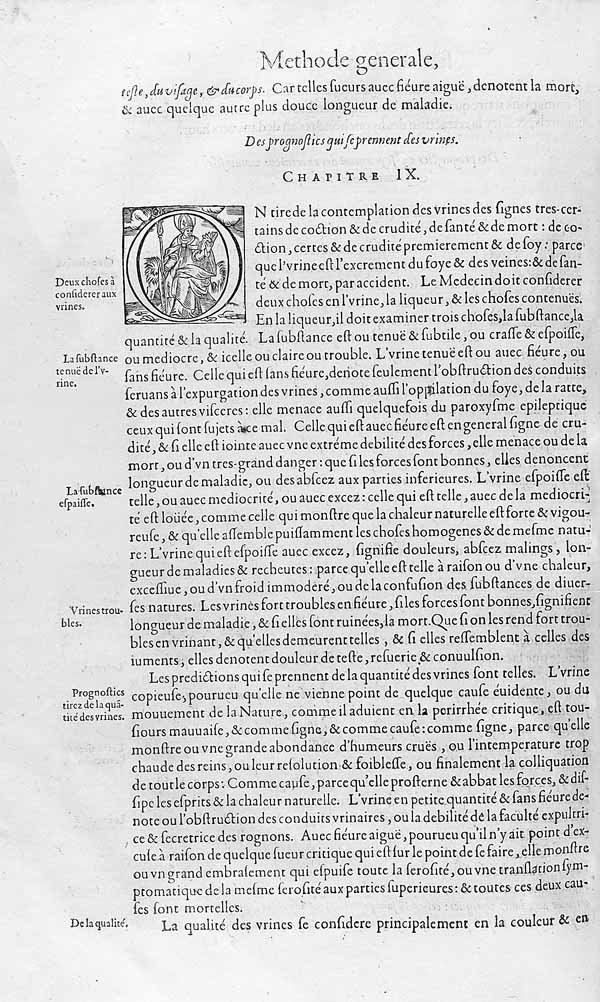 Methode generale,
teste, du visage, & du corps. Car telles sueurs auec fiéure aiguë, denotent la mort,
& auec quelque autre plus douce longueur de maladie.
Des prognostics qui se prennent des vrines.
CHAPITRE IX.
ON tire de la contemplation des vrines des signes tres-cer-
tains de coction & de crudité, de santé & de mort : de co-
ction, certes & de crudité premierement & de soy : parce
que l'vrine est l'excrement du foye & des veines: & de san-
té & de mort, par accident. Le Medecin doit considerer
deux choses en l'vrine, la liqueur, & les choses contenuës.
En la liqueur, il doit examiner trois choses, la substance, la
quantité & la qualité. La substance est ou tenuë & subtile, ou crasse & espoisse,
ou mediocre, & icelle ou claire ou trouble. L'vrine tenuë est ou auec fiéure, ou
sans fiéure. Celle qui est sans fiéure, denote seulement l'obstruction des conduits
seruans à l'expurgation des vrines, comme aussi l'oppilation du foye, de la ratte,
& des autres visceres : elle menace aussi quelquefois du paroxysme epileptique
ceux qui sont sujets à ce mal. Celle qui est auec fiéure est en general signe de cru-
dité, & si elle est iointe auec vne extréme debilité des forces, elle menace ou de la
mort, ou d'vn tres-grand danger : que si les forces sont bonnes, elles denoncent
longueur de maladie, ou des abscez aux parties inferieures. L'vrine espoisse est
telle, ou auec mediocrité, ou auec excez : celle qui est telle, auec de la mediocri-
té est loüée, comme celle qui monstre que la chaleur naturelle est forte & vigou-
reuse, & qu'elle assemble puissamment les choses homogenes & de mesme natu-
re : L'vrine qui est espoisse auec excez, signifie douleurs, abscez malings, lon-
gueur de maladies & recheutes : parce qu'elle est telle à raison ou d'vne chaleur,
excessiue, ou d'vn froid immoderé, ou de la confusion des substances de diuer-
ses natures. Les vrines fort troubles en fiéure, si les forces sont bonnes, signifient
longueur de maladie, & si elles sont ruinées, la mort. Que si on les rend fort trou-
bles en vrinant, & qu'elles demeurent telles, & si elles ressemblent à celles des
iuments, elles denotent douleur de teste, resuerie, & conuulsion.
Les predictions qui se prennent de la quantité des vrines sont telles. L'vrine
copieuse, pourueu qu'elle ne vienne point de quelque cause éuidente, ou du
mouuement de la Nature, comme il aduient en la perirrhée critique, est tou-
siours mauuaise, & comme signe, & comme cause : comme signe, parce qu'elle
monstre ou vne grande abondance d'humeurs cruës, ou l'intemperature trop
chaude des reins, ou leur resolution & foiblesse, ou finalement la colliquation
de tout le corps : Comme cause, parce qu'elle prosterne & abbat les forces, & dis-
sipe les esprits & la chaleur naturelle. L'vrine en petite quantité & sans fiéure de-
note ou l'obstruction des conduits vrinaires, ou la debilité de la faculté expultri-
ce & secretrice des rognons. Auec fiéure aiguë, pourueu qu'il n'y ait point d'ex-
cuse à raison de quelque sueur critique qui est sur le point de se faire, elle monstre
ou vn grand embrasement qui espuise toute la serosité, ou vne translation sym-
ptomatique de la mesme serosité aux parties superieures : & toutes ces deux cau-
ses sont mortelles.
La qualité des vrines se considere principalement en la couleur & en
Deux choses à
considerer aux
vrines.
La substance
tenuë de l'v-
rine.
La substance
espaisse.
Vrines trou-
bles.
Prognostics
tirez de la quã-
tité des vrines.
De la qualité.